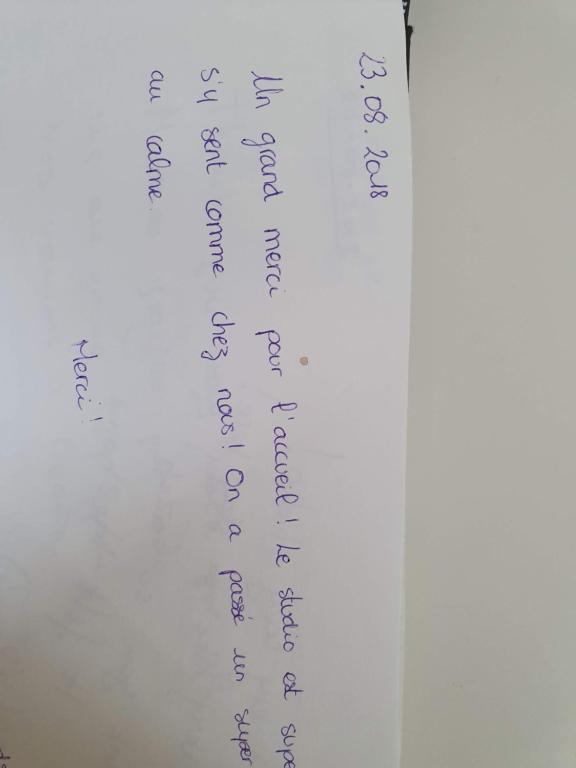 23.08.2018
Un grand merci pour l'accueil! Le studio est supe
s'y sent comme chez nous! On a passé un super
au calme.
Merci!